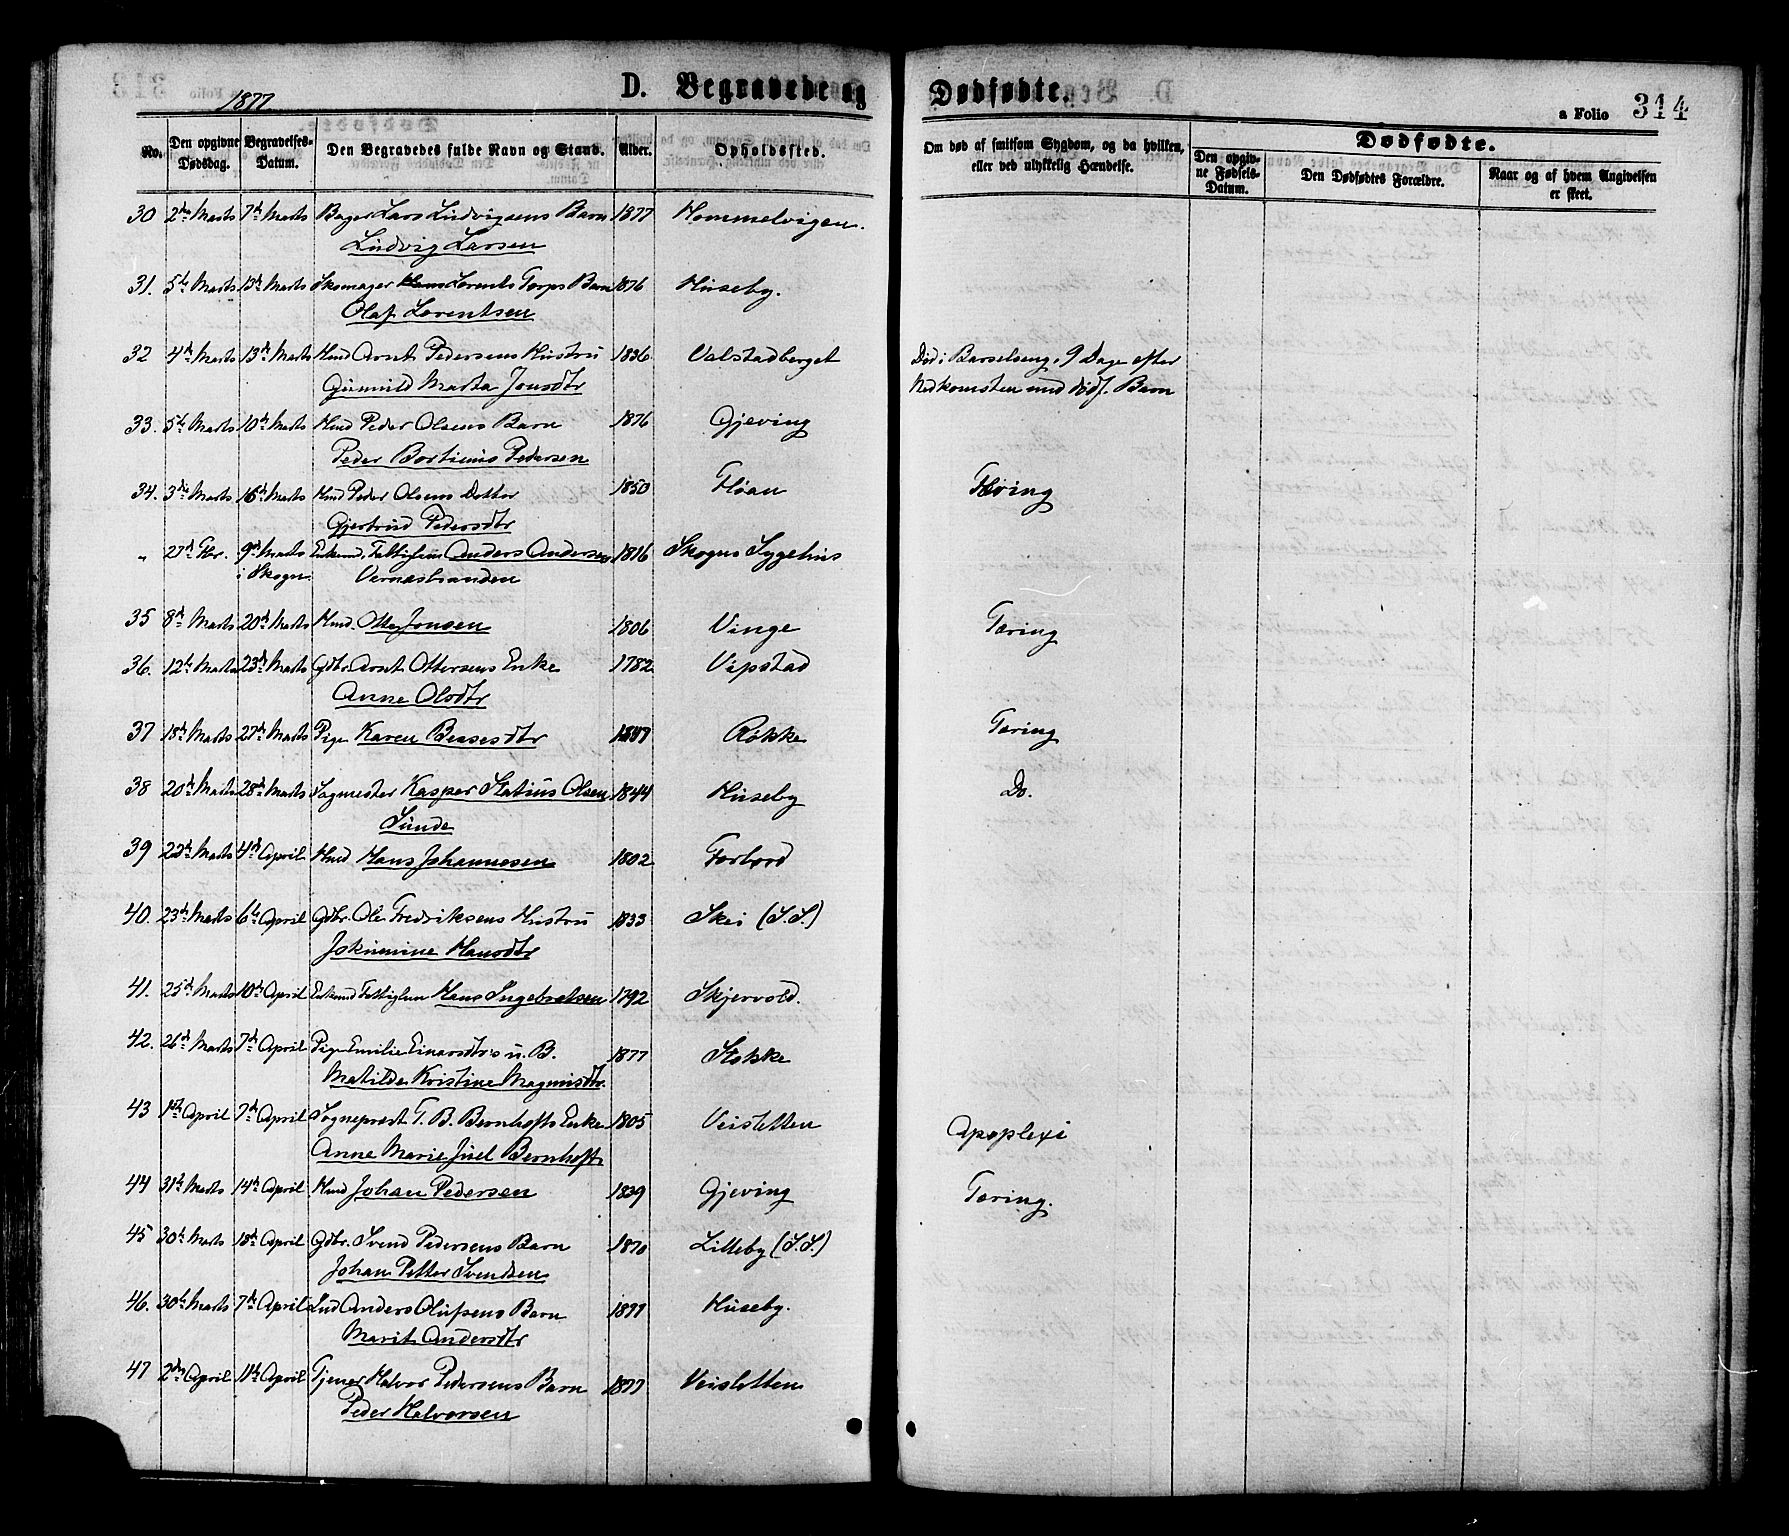 1877
D. Begravede og Dødfødte.
a Folio 314
No.
Den opgivne Dødsdag.
Begravelses-Datum.
Den Begravedes fulde Navn og Stand.
Alder.
Opholdssted.
Om død af smitsom Sygdom, og da hvilken, eller ved ulykkelig Hændelse.
Dødfødte.
Den opgivne Fødsels-Datum.
Den Dødfødtes Forældre.
Naar og af hvem Angivelsen er skeet.
30 2den Marts 7de Marts Bager Lars Ludvigsens Barn 1877 Hommelvigen.
Ludvig Larsen
31. 5te Marts 13de Marts Skomager Lorents Torps Barn 1876 Huseby.
Olaf Lorentsen
32 4de Marts 13de Marts Hmd Arnt Pedersens Hustru 1836 Valstadberget Død i Barselseng, 9 Dage efter
Gunnild Marta Jonsdtr Nedkomsten med dødf. Barn
33. 5te Marts 10de Marts Hmd Peder Olsens Barn 1876 Gjeving
Peder Bortinus Pedersen
34. 3die Marts 16de Marts Hmd Peder Olsens Datter 1850 Fløan Tæring
Gjertrud Pedersdtr
" 27de Fbr. 9de Marts Enkemd, Fattiglem Anders Andersen 1816 Skogns Sygehus
i Skogn Vernæsstranden
35 8de Marts 20de Marts Hmd. Otte Jonsen 1806 Vinge Tæring
36. 12te Marts 23de Marts Gdbr. Arnt Ottersens Enke 1782 Vipstad
Anne Olsdtr
37 18de Marts 27de Marts Pige Karen Bessesdtr 1847 Røkke Tæring
38 20de Marts 28de Marts Sagmester Kasper Statius Olsen 1844 Huseby Do.
Sunde
39 22de Marts 4de April Hmd Hans Johannesen 1802 Forbord
40. 23de Marts 6te April Gdbr. Ole Fredriksens Hustru 1833 Skei (S.S.)
Jokumine Hansdtr
41. 25de Marts 10de April Enkemd Fattiglem Hans Ingebretsen 1792 Skjervold.
42. 26de Marts 7de April Pige Emilie Einarsdtrs u. B. 1877 Stokke
Matilde Kristine Magnusdtr.
43 1ste April 7de April Sogneprest T. B. Bernhofts Enke 1805 Veisletten Apoplexi
Anne Marie Juel Bernhoft
44 31te Marts 14de April Hmd Johan Pedersen 1839 Gjeving Tæring.
45 30te Marts 18de April Gdbr. Svend Pedersens Barn 1870 Lilleby (S.S.)
Johan Petter Svendsen
46. 30te Marts 7de April Ind Anders Olufsens Barn 1877 Huseby.
Marit Andersdtr
47 2den April 11te April Tjener Halvor Pedersens Barn 1877 Veisletten
Peder Halvorsen